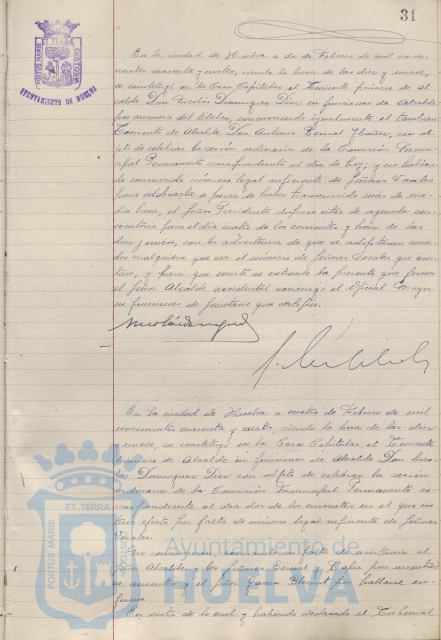 31
PORTUS MARIS ET TERRÆ CUSTODIA
AYUNTAMIENTO DE HUELVA
En la ciudad de Huelva a dos de Febrero de mil no-
vecientos cuarenta y cuatro, siendo la hora de las diez y nueve,
se constituyó en la Casa Capitular el Teniente primero de Al-
calde Don Nicolás Dominguez Diaz en funciones de Alcalde
por ausencia del titular, concurriendo igualmente el tambien
Teniente de Alcalde Don Antonio Bernal Ibañez, con ob-
jeto de celebrar la sesión ordinaria de la Comisión Muni-
cipal Permanente correspondiente al dia de hoy; y no habien-
do concurrido número legal suficiente de Señores Vocales
para celebrarla a pesar de haber transcurrido más de me-
dia hora, el Señor Presidente dispuso citar de segunda con-
vocatoria para el día cuatro de los corrientes y hora de las
diez y nueve, con la advertencia de que se adoptarán acuer-
dos cualquiera que sea el número de Señores Vocales que asis-
tan, y para que conste se extiende la presente que firma
el Señor Alcalde accidental conmigo el Oficial Mayor
en funciones de Secretario que certifico.
En la ciudad de Huelva a cuatro de Febrero de mil
novecientos cuarenta y cuatro, siendo la hora de las diez
y nueve, se constituyó en la Casa Capitular el Teniente
primero de Alcalde en funciones de Alcalde Don Nico-
las Dominguez Diaz con objeto de celebrar la sesión
ordinaria de la Comisión Municipal Permanente co-
rrespondiente al dia dos de los corrientes en el que no
tuvo efecto por falta de número legal suficiente de Señores
Vocales.
No concurren excusando su falta de asistencia el
Señor Alcalde y los Señores Bernal y por encontrar-
se ausentes y el Señor Garcia por hallarse en-
fermo.
En vista de lo cual y habiendo declarado el Tribunal
PORTUS MARIS ET TERRÆ CUSTODIA
Ayuntamiento de
HUELVA